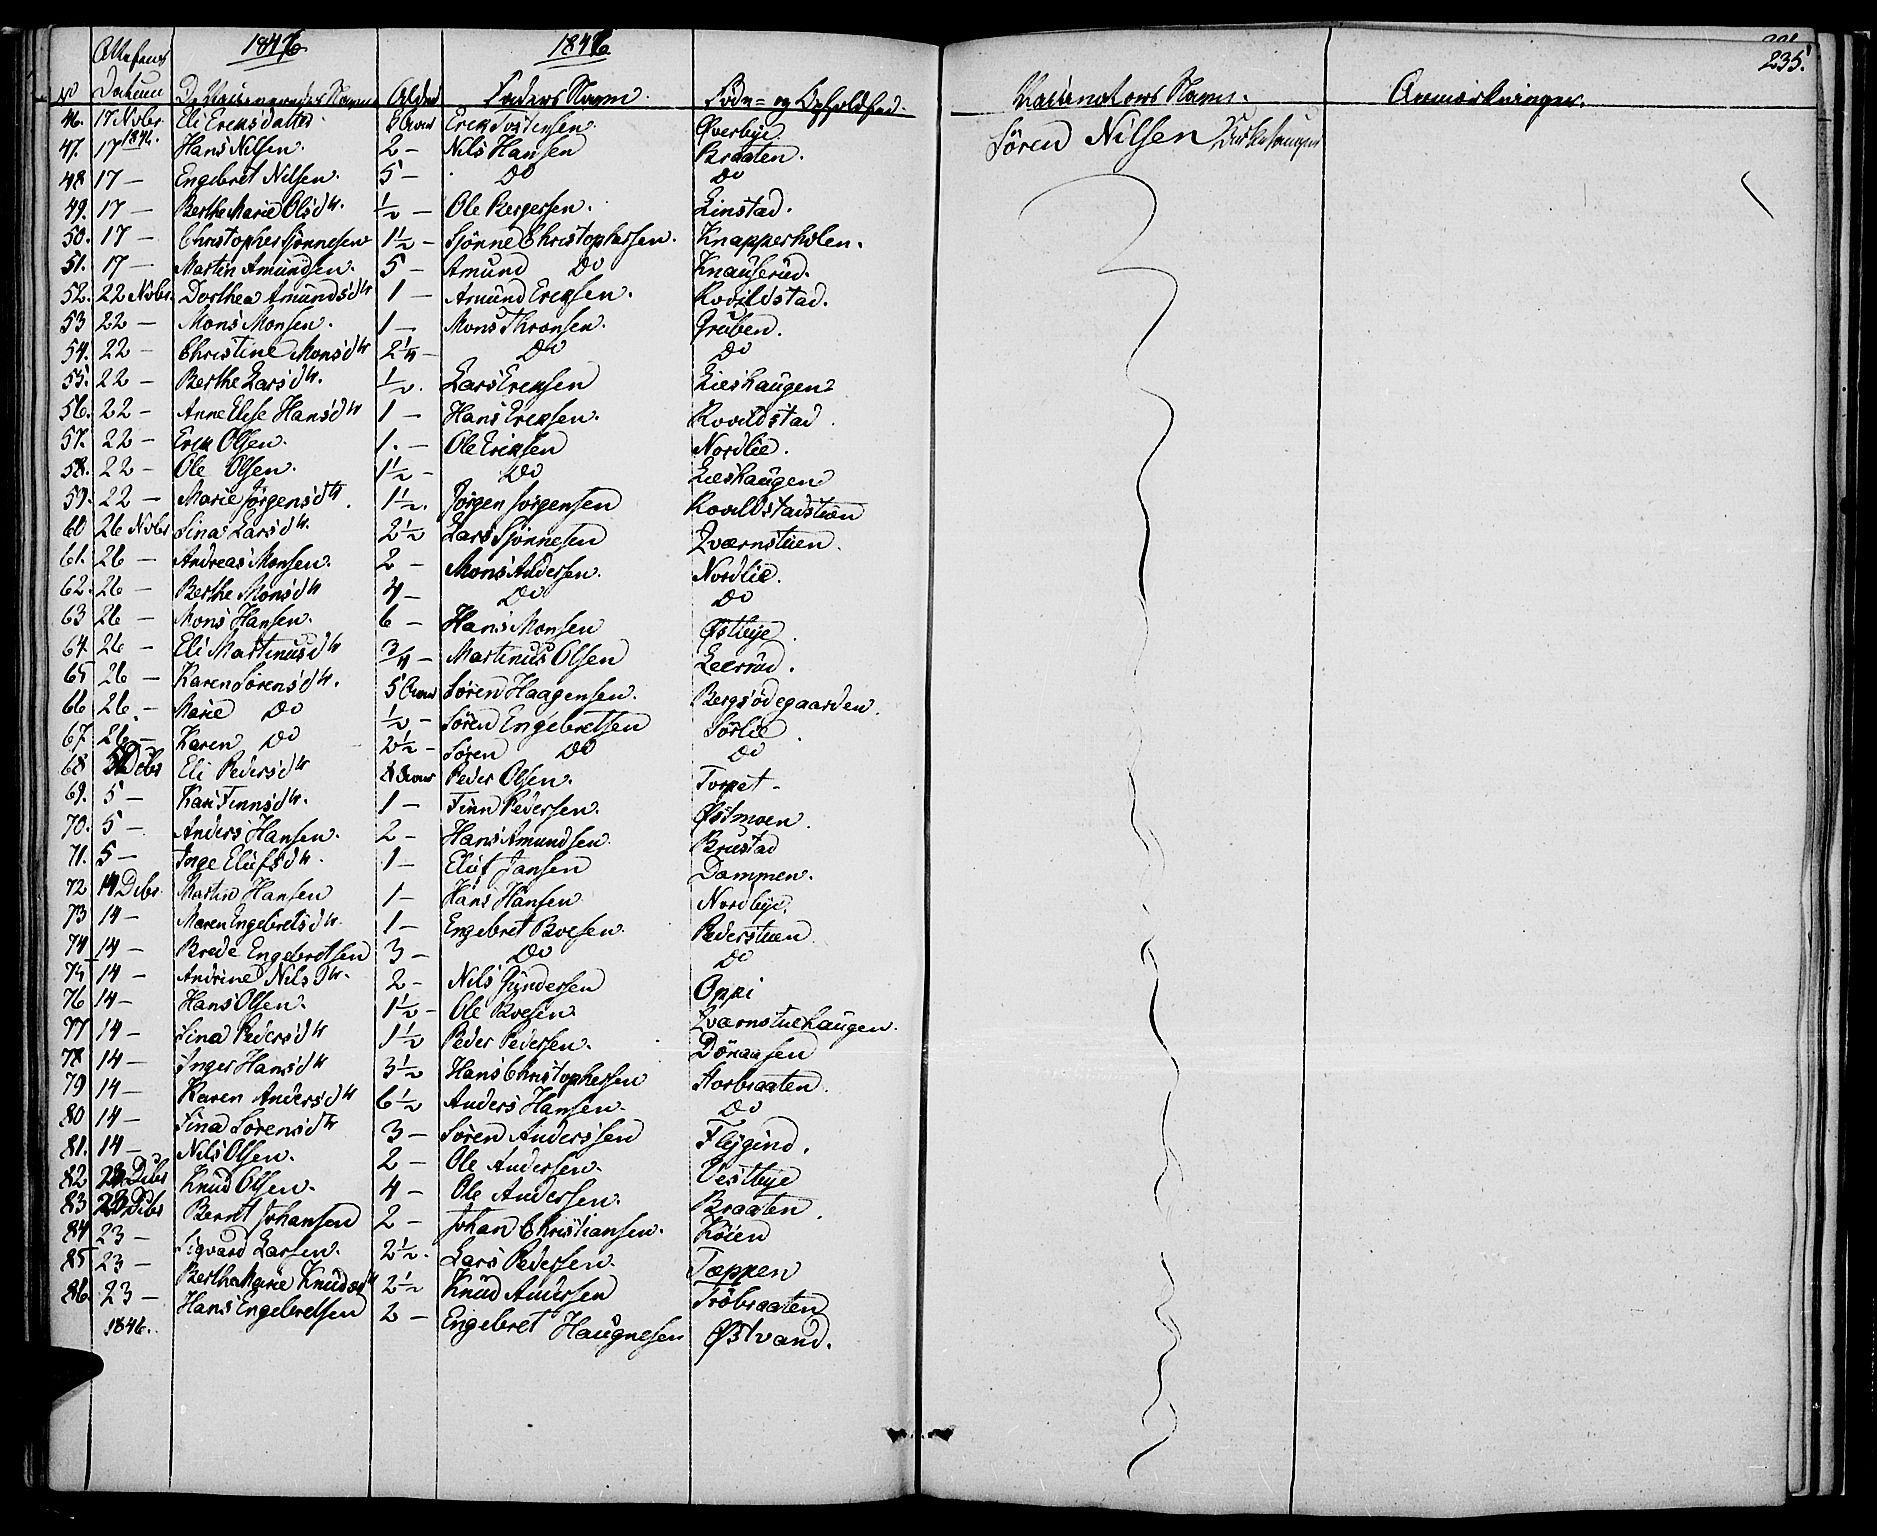 1846. 1846. 235.
Attestens
No Datum De Vaccineredes Navne Alder Faders Navn. Føde- og Opholdsted. Vaccinateurs Navn. Anmerkninger.
46. 17 Novbr 1846. Eli Eriksdatter Erik Tostensen Øverbye Søren Nilsen Kirkesanger
47. 17 Hans Nilsen. 2 - Nils Hansen Braaten.
48 17 - Engebret Nilsen. 5 - Do Do
49. 17 - Berthe Marie Olsdtr. 1/2 - Ole Bergersen. Linstad.
50. 17 - Christopher Sjønnesen 1 1/2 - Sjønne Christophersen. Knapperholen.
51. 17 - Martin Amundsen. 5 - Amund Do Knauserud.
52. 22 Novbr. Dorthea Amundsdtr 1 - Amund Eriksen. Rovildstad.
53 22 - Mons Monsen. 1 - Mons Thronsen. Gruben.
54. 22 - Christine Monsdtr 2 1/4 - Do Do
55. 22 - Berthe Larsdtr. 1/2. Lars Eriksen Lieshaugen
56. 22 - Anne Elise Hansdtr 1 - Hans Eriksen. Rovildstad.
57. 22 - Erik Olsen. 1. - Ole Eriksen Nordlie.
58. 22 - Ole Olsen. 1 1/2 - Do Lieshaugen
59. 22 - Marie Jørgensdtr. 1 1/2. Jørgen Jørgensen Rovildstadstuen
60 26 Novbr Sina Larsdtr. 2 1/2 Lars Sjønnesen Qværnstuen.
61. 26 - Andreas Monsen. 2 - Mons Andersen. Nordlie.
62. 26 - Berthe Monsdtr 4 - Do Do
63 26 - Mons Hansen. 6 - Hans Monsen Østbye.
64. 26 - Eli Martinusdtr 3/4 - Martinus Olsen Leerrud.
65 26 - Karen Sørensdtr. 5 Søren Haagensen. Bergsødegaarden.
66 26. - Marie Do 1/2 - Søren Engebretsen Sørlie.
67. 26 - Karen Do 2 1/2 - Søren Do Do
68 5 Debr Eli Pedersdtr Peder Olsen. Torpet -
69. 5 - Kari Finnsdtr. 1 - Finn Pedersen. Østmoen.
70. 5 - Anders Hansen. 2 - Hans Amundsen. Brustad
71. 5 - Inge Elufsdtr. 1 - Eluf Jansen Dammen.
72 14 Debr. Martin Hansen 1 - Hans Hansen Nordbye.
73 14 - Maren Engebretsdtr. 1 - Engebret Boesen. Pederstuen
74 14 - Brede Engebretsen 3 - Do Do
75 14 - Andrine Nilsdtr. 2 - Nils Gundersen Oppi
76 14 - Hans Olsen. 1 1/2 - Ole Boesen Qværnstuehaugen.
77 14 - Sina Pedersdtr 1 1/2 Peder Pedersen. Dønaasen
78 14 - Inger Hansdtr 3 1/2 Hans Christophersen Storbraaten.
79 14 - Karen Andersdtr 6 1/2 Anders Hansen. Do
80 14 - Sina Sørensdtr 3 - Søren Anderssen Flygind.
81. 14 - Nils Olsen. 2 - Ole Andersen. Vestbye
82 23 Debr Knud Olsen. 4 - Ole Andersen. Braaten.
83 23 Debr Bernt Johansen 2 - Johan Christiansen. Køien
84 23 - Sigvard Larsen. 2 1/2. Lars Pedersen. Tæppen
85 23 - Berthe Marie Knudsdtr 2 1/2 Knud Andersen Trøbraaten
86. 23 - Hans Engebretsen 2 - Engebret Haugnesen Østvand.
1846.